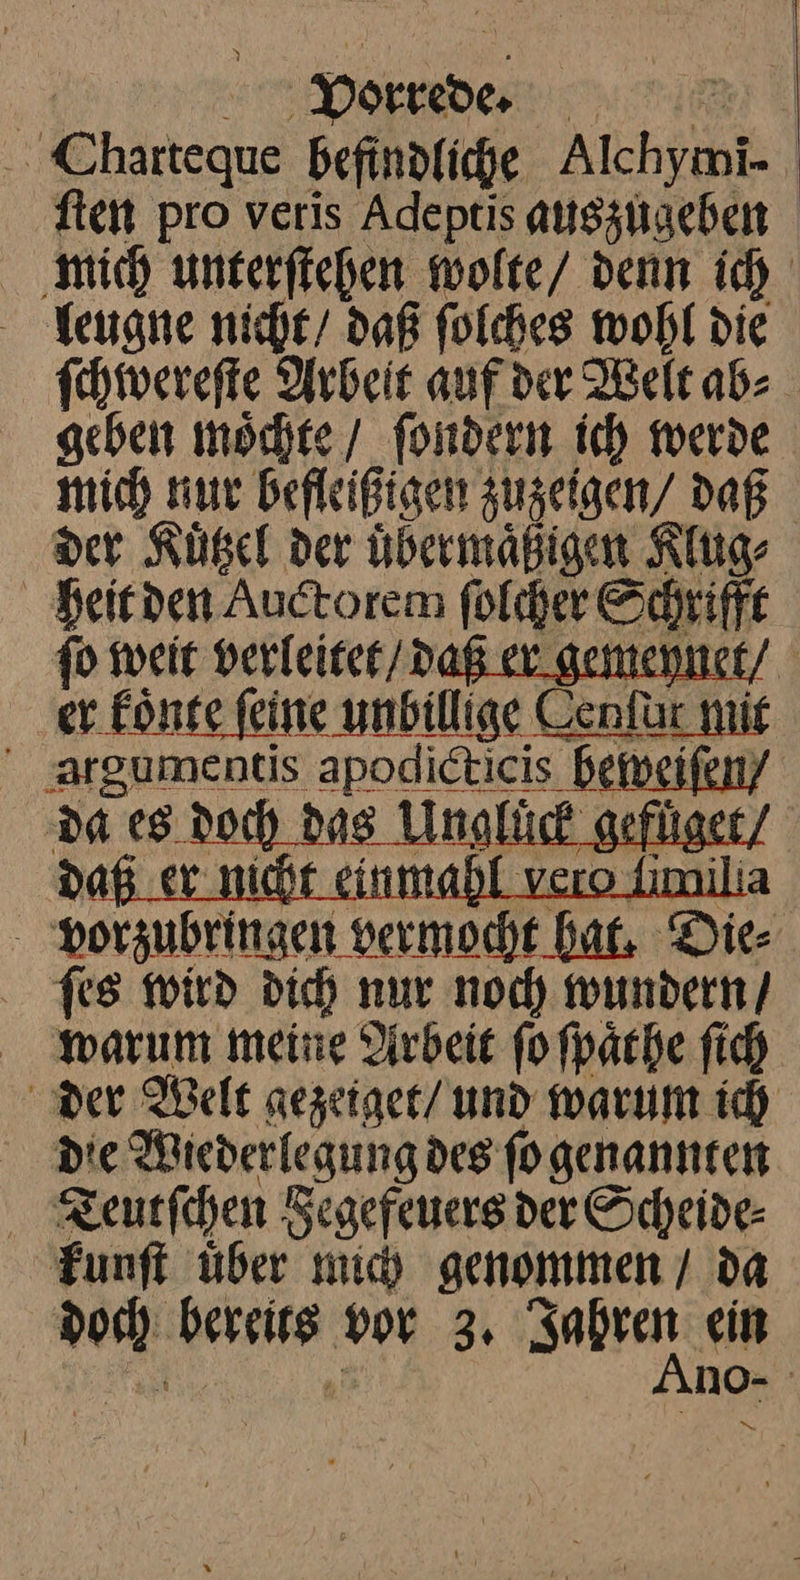 Vorrede.
Charteque befindliche Alchymi-
ſten pro veris Adeptis auszugeben
mich unterſtehen wolte/ denn ich
leugne nicht/ daß ſolches wohl die
ſchwereſte Arbeit auf der Welt ab⸗
geben moͤchte/ ſondern ich werde
mich nur befleißigen zuzeigen/ daß
der Kuͤtzel der uͤbermaͤßigen Klug⸗
heit den Auctorem ſolcher Schrifft
ſo weit verleitet/ daß er gemeynet/
er koͤnte ſeine unbillige Cenſur mit
argumentis apodicticis beweiſen/
da es doch das Ungluͤck gefuͤget/
daß er nicht einmahl vero ſimilia
vorzubringen vermocht hat. Die⸗
ſes wird dich nur noch wundern/
warum meine Arbeit ſo ſpaͤthe ſich
der Welt gezeiget/ und warum ich
die Wiederlegung des ſo genannten
Teutſchen Fegefeuers der Scheide⸗
kunſt uͤber mich genommen/ da
doch bereits vor 3. Jahren ein
Ano-